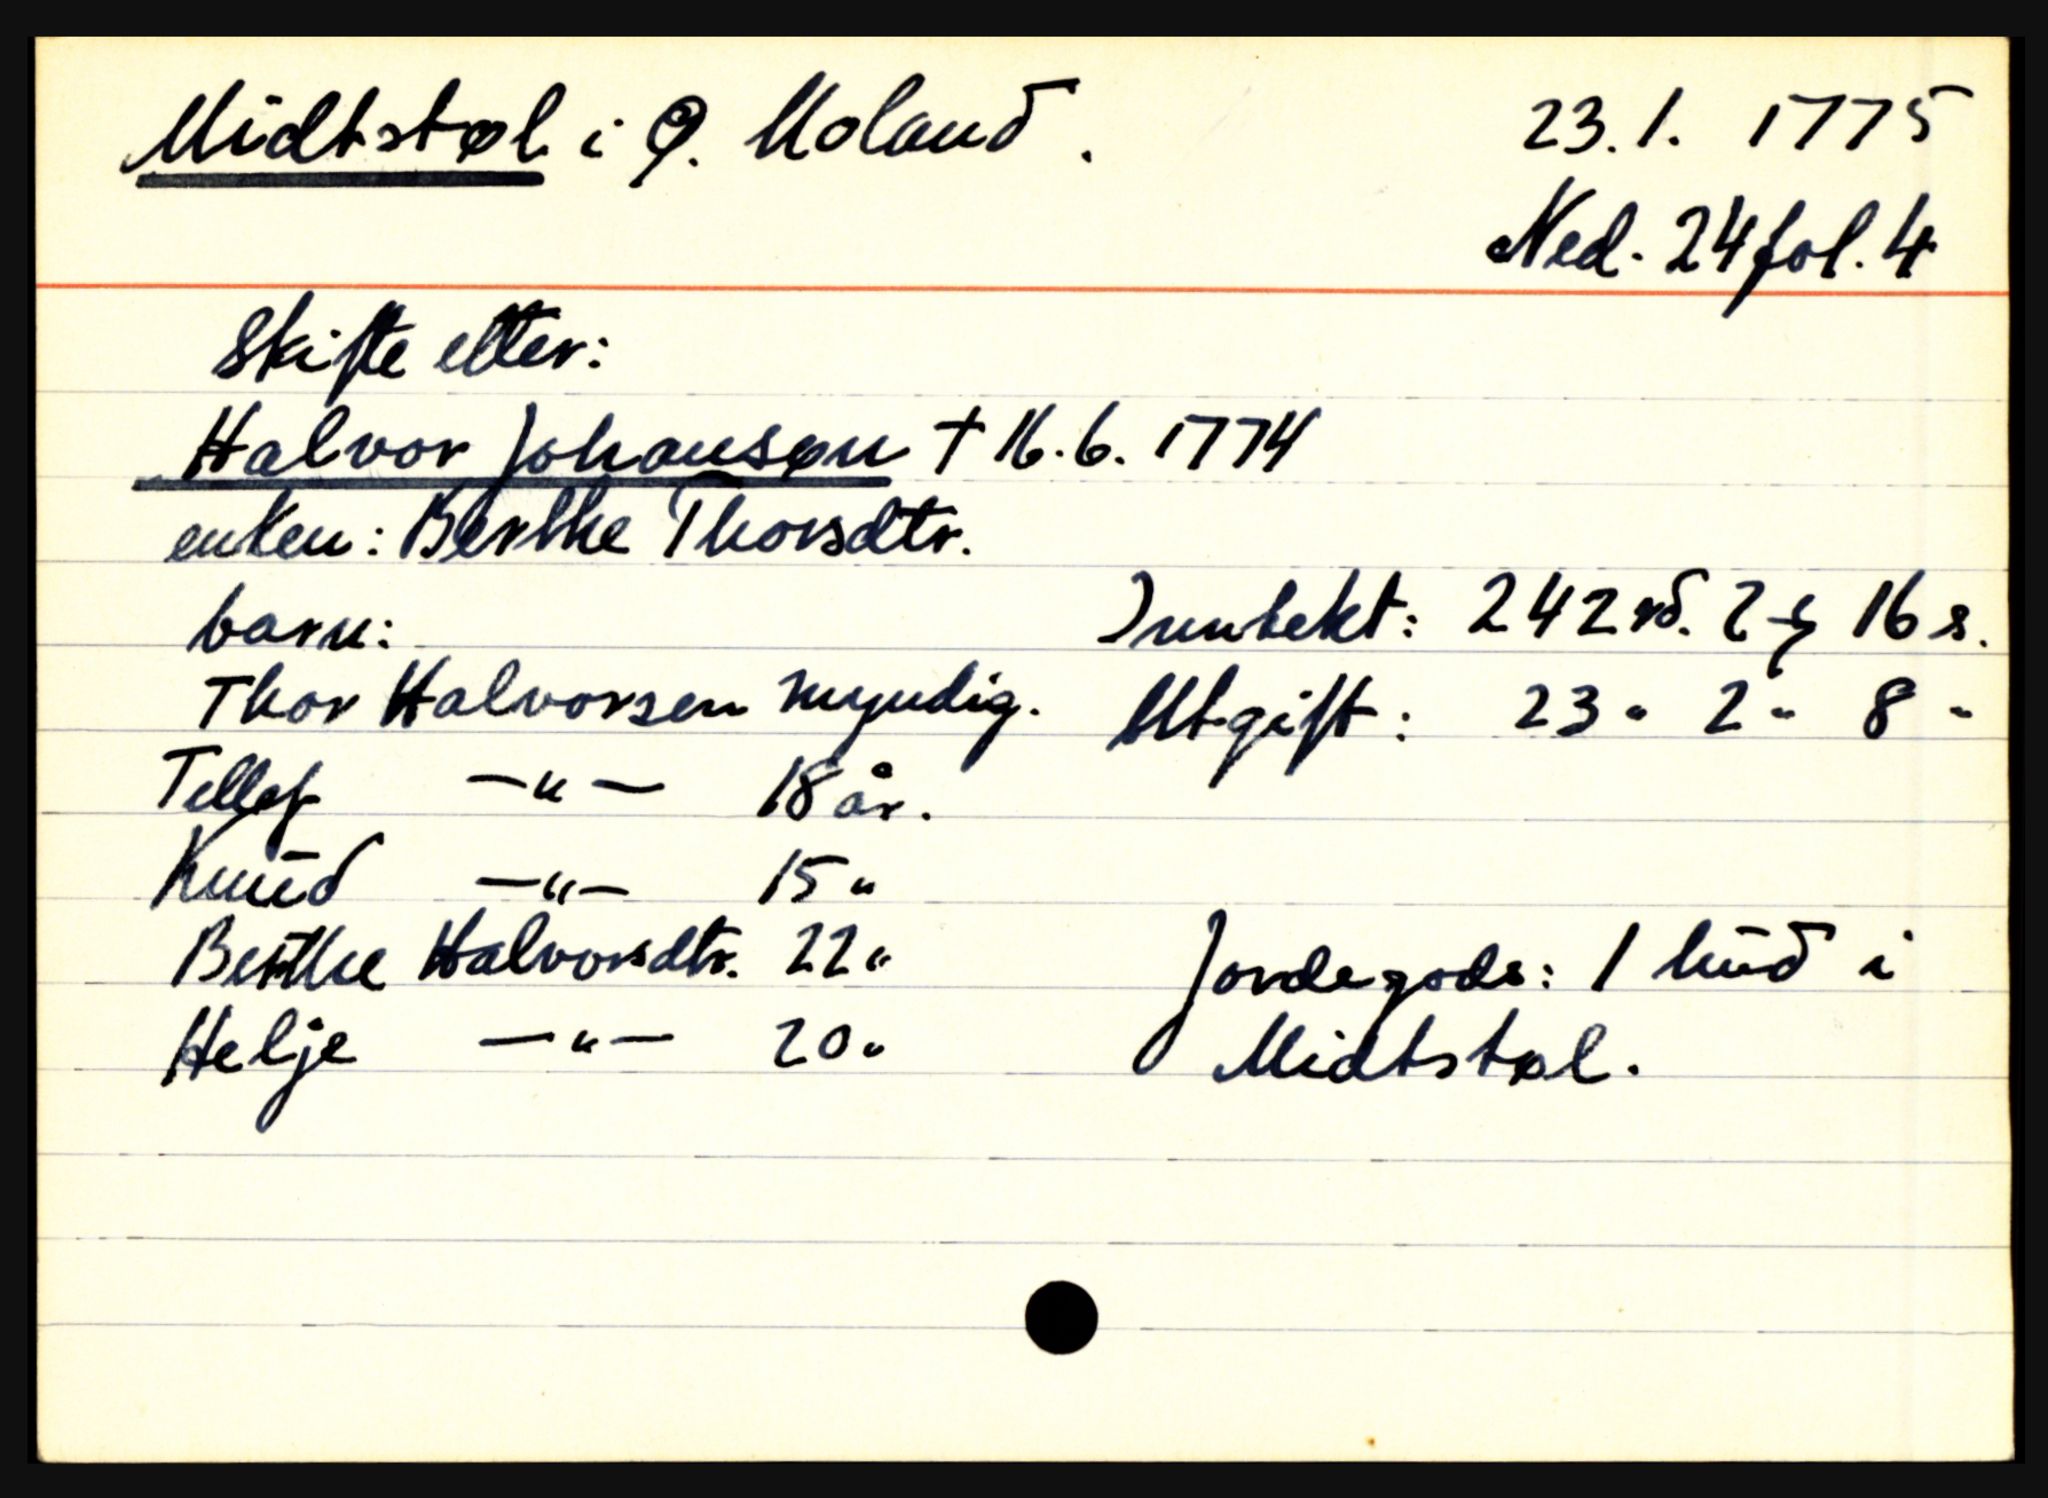 Midtstøl i Ø. Moland. 23.1. 1775
Ned. 24 fol. 4
Skifte etter:
Halvor Johansøn † 16.6. 1774
enken: Berthe Thorsdtr.
barn: Inntekt: 242 rd. 2 ꝭ 16 s.
Thor Halvorsen myndig. Utgift: 23 " 2 " 8 "
Tellef —"— 18 år.
Knud —"— 15 "
Berthe Halvorsdtr. 22 "
Jordegods: 1 hud i
Helje —"— 20 "
Midtstøl.